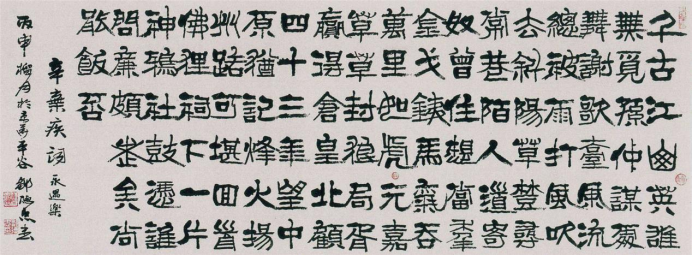 千古江山英雄
無覓孫仲謀處
舞榭歌臺風流
總被雨打風吹
去斜陽草樹尋
常巷陌人道寄
奴曾住想當年
金戈鐵馬氣吞
萬里如虎元嘉
草草封狼居胥
贏得倉皇北顧
四十三年望中
原猶記烽火揚
州路可堪回首
佛狸祠下一片
神鴉社鼓憑誰
問廉頗老矣尚
能飯否
辛棄疾詞 永遇樂
丙申 於京 平谷